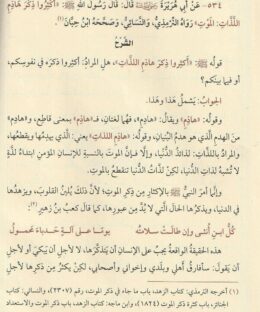 ٥٣٤- عَنْ أَبِي هُرَيْرَةَ قَالَ: قَالَ رَسُولُ اللهِ ﷺ: «أَكْثِرُوا ذِكْرَ هَاذِمِ
اللَّذَّاتِ: المَوْتِ» رَوَاهُ التِّرْمِذِيُّ، وَالنَّسَائِيُّ، وَصَحَّحَهُ ابْنُ حِبَّانَ(١).
الشَّرْحُ
قولُهُ ﷺ: «أَكْثِرُوا ذِكْرَ هَاذِمِ اللَّذَّاتِ»، هلِ المرادُ: أكثروا ذِكرَه في نفوسِكم،
أو فيما بينكم؟
الجوابُ: يَشملُ هذا وهذا.
وقولُه: «هاذِم» ويقالُ: «هادِم»، فهما لغتانِ، فـ«هاذِم» بمعنى قاطِعٍ، و«هادِم»
من الهدمِ الذي هو هدمُ البُنيانِ، وقولُه: «هادِم اللَّذَّاتِ» يعني: الَّذي يهدِمُها ويقطعُها،
والمرادُ باللَّذاتِ: لذائذُ الدُّنيا، وإلَّا فإنَّ الموتَ بالنسبةِ للإنسانِ المؤمنِ ابتداءُ لذَّةٍ
لا تُشبهُ لذَّاتِ الدُّنيا، لكنْ لذَّاتُ الدُّنيا تنقطعُ بالموتِ.
وإنَّما أمرَ النبيُّ ﷺ بالإكثارِ من ذِكرِ الموتِ؛ لأنَّ ذلك يُلِينُ القلوبَ، ويزهدُها
في الدنيا، ويذكرُها الحالَ الَّتي لا بُدَّ من عبورِها، كما قالَ كعبُ بنُ زهيرٍ(٢):
كُلُّ ابنِ أُنثى وإن طالَتْ سلامتُهُ يومًا على آلةٍ حَدباءَ محمولُ
هذه الحقيقةُ الواقعةُ يجبُ على الإنسانِ أن يتذكَّرَها، لا لأجلِ أن يبكيَ أو لأجلِ
أن يقولَ: سأفارقُ أهلي وبلدي وإخواني وأصحابي، لكنْ يكثرُ من ذِكرِها لأجلِ
(١) أخرجه الترمذي: كتاب الزهد، باب ما جاء في ذكر الموت، رقم (٢٣٠٧)، والنسائي: كتاب
الجنائز، باب كثرة ذكر الموت (١٨٢٤)، وابن ماجه: كتاب الزهد، باب ذكر الموت والاستعداد